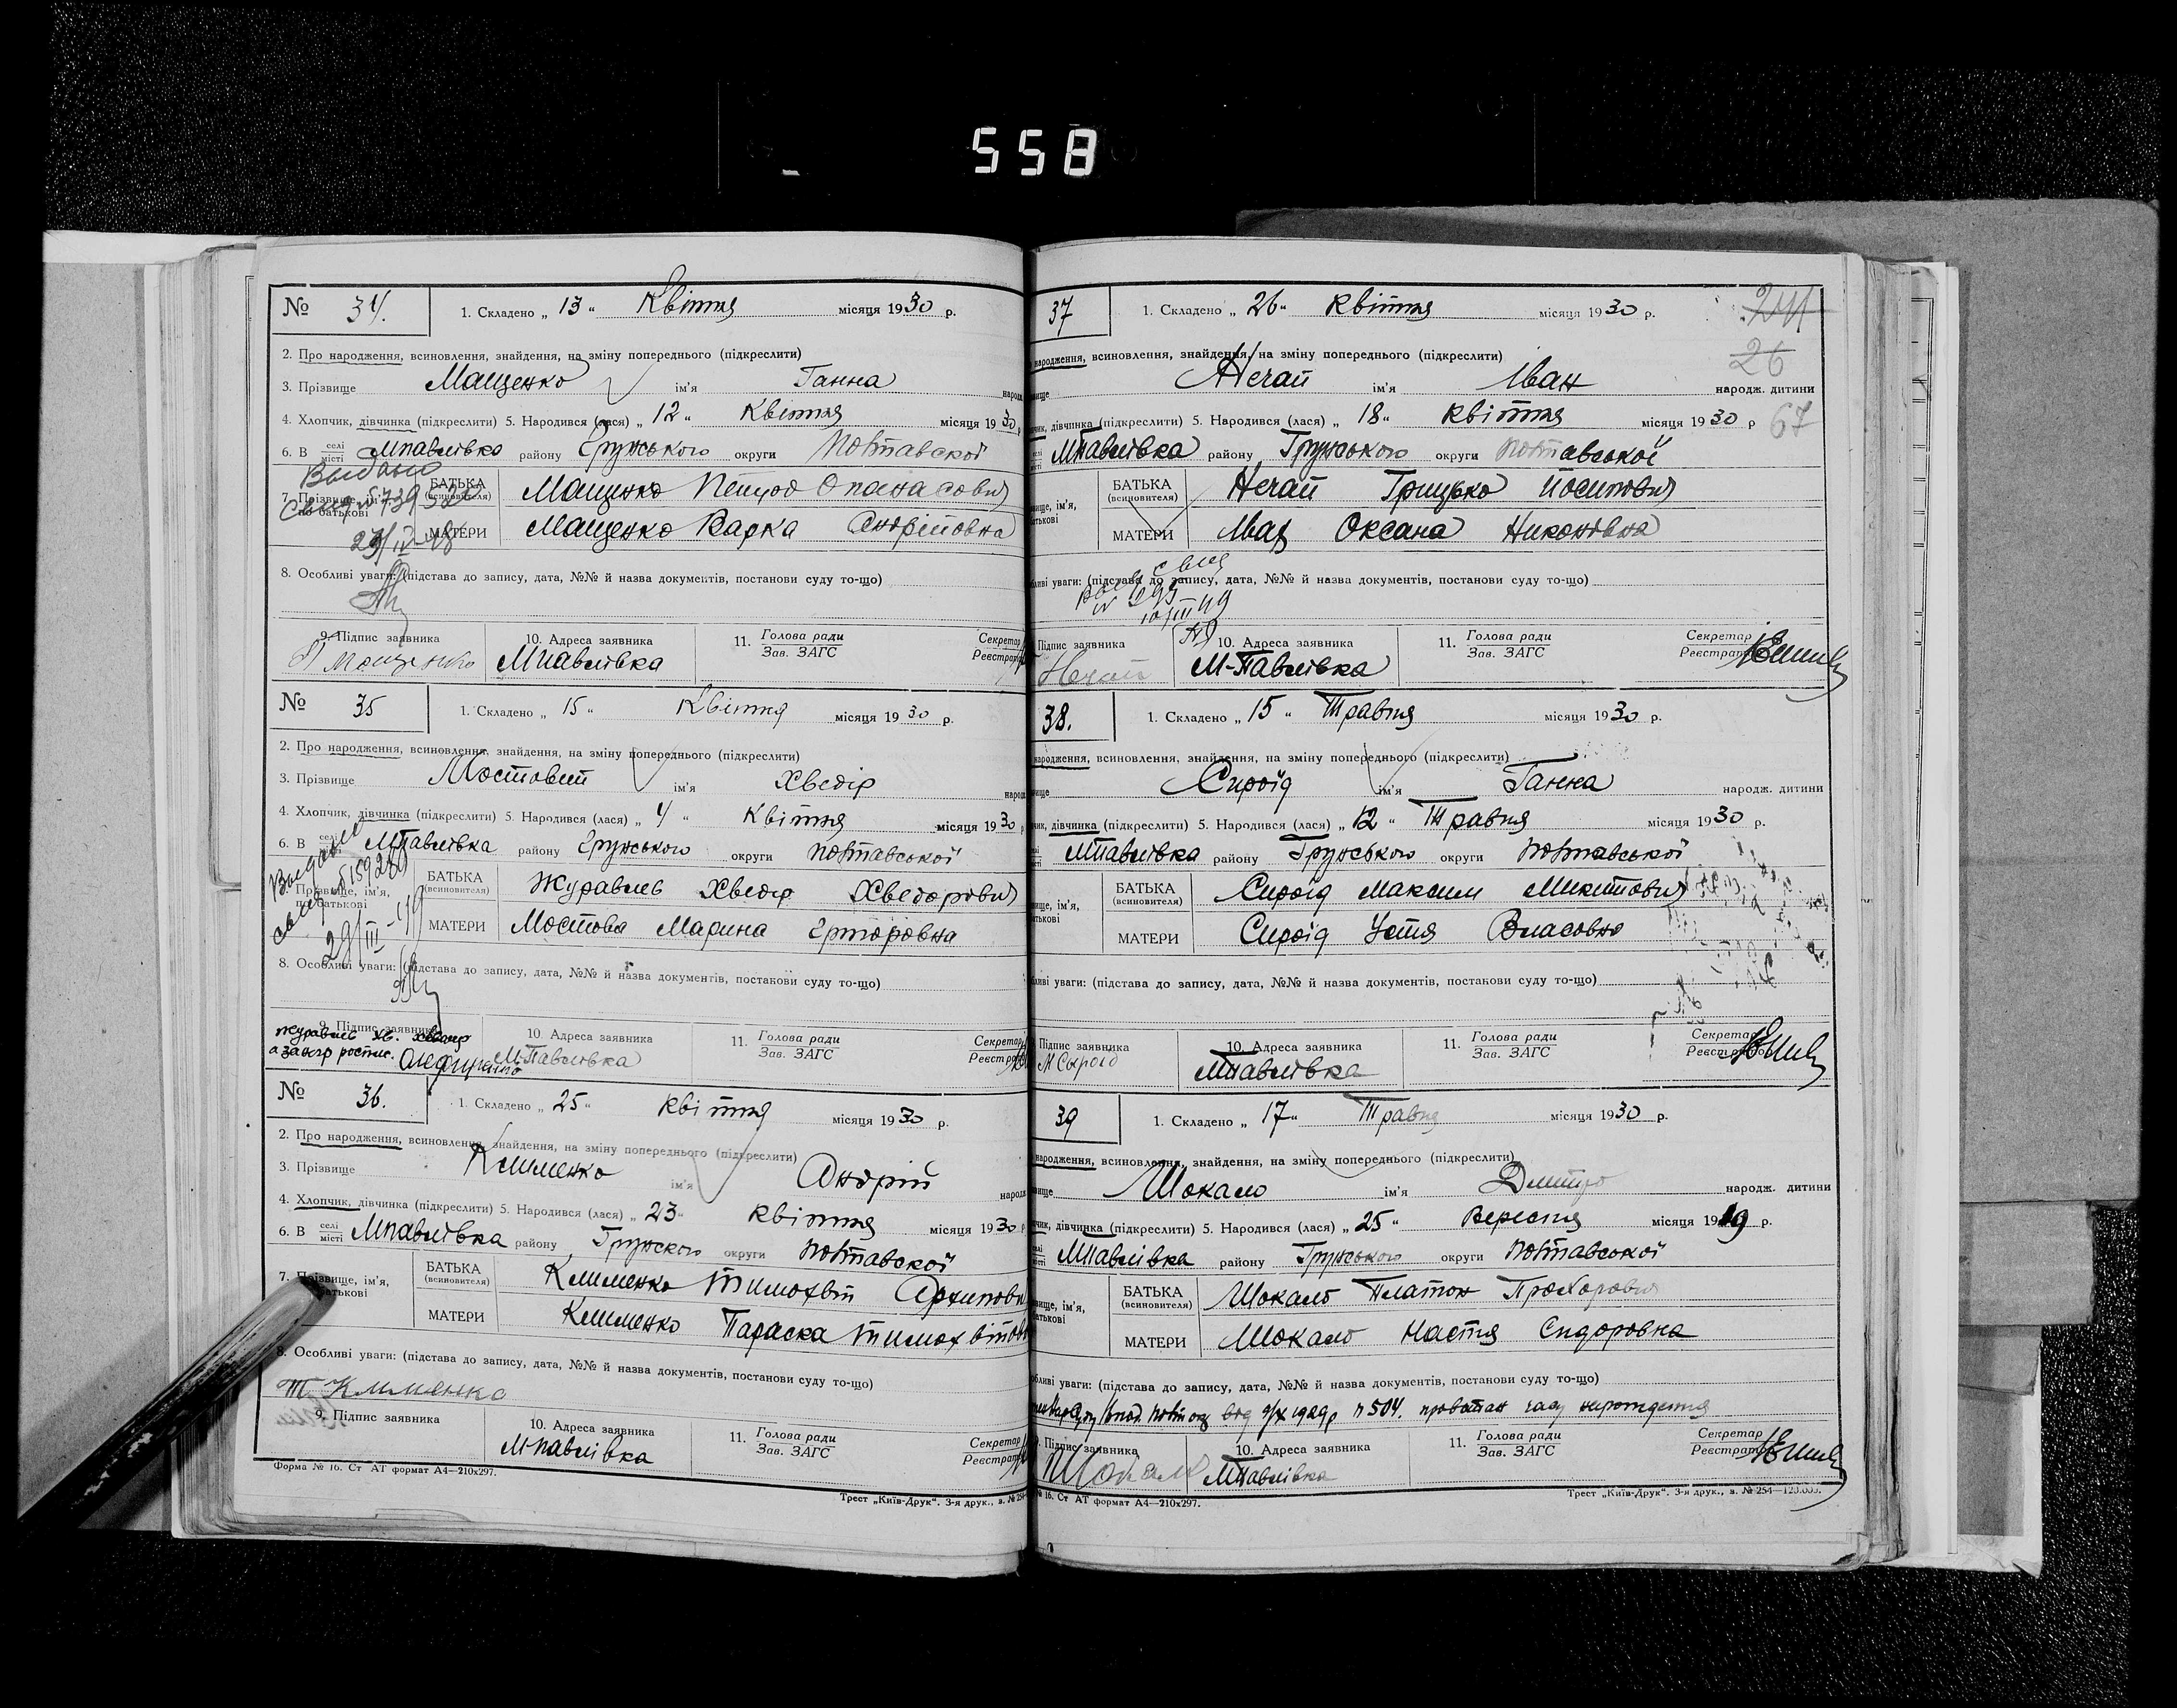 558
№ 34. 1. Складено „ 13 “ Квітня місяця 1930 р.
2. Про народження, всиновлення, знайдення, на зміну попереднього (підкреслити)
3. Прізвище Мащенко ім'я Ганна народж
4. Хлопчик, дівчинка (підкреслити) 5. Народився (лася) „ 12 “ Квітня місяця 1930 р
6. В селі місті Мпавлівка району Грунського округи Полтавської
Выдано
7. Прізвище, ім'я, по батькові БАТЬКА (всиновителя) Мащенко Опанасович
МАТЕРИ Мащенко Варка Андріївна
8. Особливі уваги: (підстава до запису, дата, №№ й назва документів, постанови суду то-що)
9. Підпис заявника 10. Адреса заявника 11. Голова ради Зав. ЗАГС Секретар Реєстрат
Мащенко Мпавлівка
№ 35 1. Складено „ 15 “ Квітня місяця 1930 р.
2. Про народження, всиновлення, знайдення, на зміну попереднього (підкреслити)
3. Прізвище Мостовий ім'я Хведір народж
4. Хлопчик, дівчинка (підкреслити) 5. Народився (лася) „ 4 “ Квітня місяця 1930 р
6. В селі місті МПавлівка району Грунського округи Полтавської
Выдано
Прізвище, ім'я, по батькові БАТЬКА (всиновителя) Журавель Хведір Хведорович
29/III-49 МАТЕРИ Мостова Марина
8. Особливі уваги: (підстава до запису, дата, №№ й назва документів, постанови суду то-що)
9. Підпис заявника 10. Адреса заявника 11. Голова ради Зав. ЗАГС Секретар Реєстрат
Журавель Хв. М-Павлівка
№ 36. 1. Складено „ 25 “ квітня місяця 1930 р.
2. Про народження, всиновлення, знайдення, на зміну попереднього (підкреслити)
3. Прізвище Клименко ім'я Андрій народж
4. Хлопчик, дівчинка (підкреслити) 5. Народився (лася) „ 23 “ квітня місяця 1930 р
6. В селі місті Мпавлівка району Грунского округи Полтавської
7. Прізвище, ім'я, батькові БАТЬКА (всиновителя) Клименко Тимохвій Архипович
МАТЕРИ Клименко Параска
8. Особливі уваги: (підстава до запису, дата, №№ й назва документів, постанови суду то-що)
Т Клименко
9. Підпис заявника 10. Адреса заявника 11. Голова ради Зав. ЗАГС Секретар Реєстрат
М-павлівка
Форма № 16. Ст АТ формат А4—210х297.
Трест „Київ-Друк“. 3-я друк., з. № 254
37 1. Складено „ 26 “ квітня місяця 1930 р.
26
народження, всиновлення, знайдення, на зміну попереднього (підкреслити)
Нечай ім'я Іван народж. дитини
дівчинка (підкреслити) 5. Народився (лася) „ 18 “ квітня місяця 1930 р 67
МПавлівка району Грунського округи Полтавської
БАТЬКА (всиновителя) Нечай Грицько Йосипович
МАТЕРИ Оксана Никонівна
уваги: (підстава до запису, дата, №№ й назва документів, постанови суду то-що)
Підпис заявника 10. Адреса заявника 11. Голова ради Зав. ЗАГС Секретар Реєстрат
Нечай М-Павлівка
38. 1. Складено „ 15 “ Травня місяця 1930 р.
народження, всиновлення, знайдення, на зміну попереднього (підкреслити)
Сироїд ім'я Ганна народж. дитини
дівчинка (підкреслити) 5. Народився (лася) „ 12 “ Травня місяця 1930 р.
Мпавлівка району Грунського округи Полтавської
БАТЬКА (всиновителя) Сироїд Максим Микитович
МАТЕРИ Сироїд Устя Власовна
уваги: (підстава до запису, дата, №№ й назва документів, постанови суду то-що)
Підпис заявника 10. Адреса заявника 11. Голова ради Зав. ЗАГС Секретар Реєстрат
М Сыроїд Мпавлівка
39 1. Складено „ 17 “ Травня місяця 1930 р.
народження, всиновлення, знайдення, на зміну попереднього (підкреслити)
Шокало ім'я Дмитро народж. дитини
дівчинка (підкреслити) 5. Народився (лася) „ 25 “ Вересня місяця 19 р.
Мпавлівка району Грунського округи Полтавської
БАТЬКА (всиновителя) Шокало Платон Прохорович
МАТЕРИ Шокало Настя Сидоровна
уваги: (підстава до запису, дата, №№ й назва документів, постанови суду то-що)
1929р n 504.
Підпис заявника 10. Адреса заявника 11. Голова ради Зав. ЗАГС Секретар Реєстрат
Шокало Мпавлівка
№ 16. Ст АТ формат А4—210х297.
Трест „Київ-Друк“. 3-я друк., з. № 254—120.000.